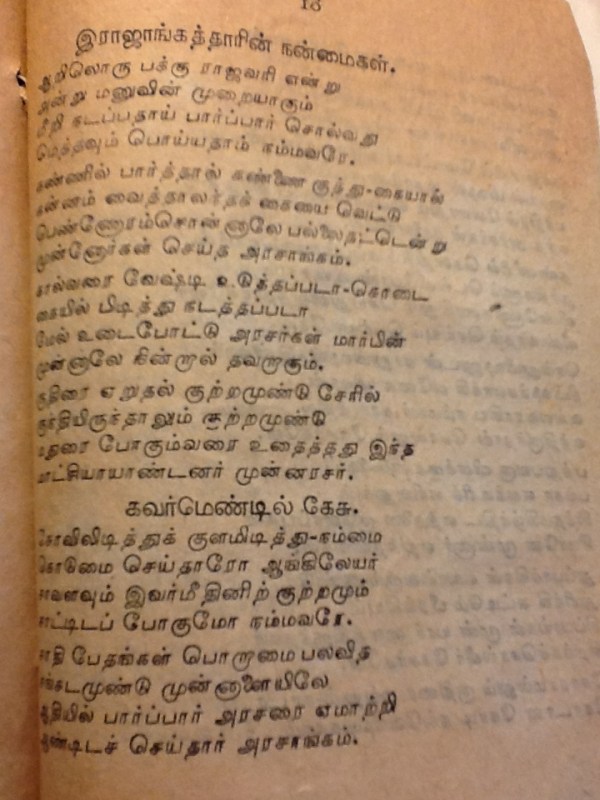 18
இராஜாங்கத்தாரின் நன்மைகள்.
ஆறிலொரு பக்கு ராஜவரி என்று
அன்று மனுவின் முறையாகும்
மீறி நடப்பதாய் பார்ப்பார் சொல்வது
மெத்தவும் பொய்யதாம் நம்மவரே.
கண்ணில் பார்த்தால் கண்ணை குத்து-கையால்
கன்னம் வைத்தாலர்தக் கையை வெட்டு
பெண்ணோரம்சொன்னாலே பல்லைதட்டென்று
முன்னோர்கள் செய்த அரசாங்கம்.
கால்வரை வேஷ்டி உடுத்தப்படா-கொடை
கையில் பிடித்து நடத்தப்படா
மேல் உடைபோட்டு அரசர்கள் மார்பின்
முன்னாலே நின்றால் தவறாகும்.
குதிரை ஏறுதல் குற்றமுண்டு சேரில்
குந்தியிருந்தாலும் குற்றமுண்டு
மதுரை போகும்வரை உதைத்தது இந்த
மாட்சியாயாண்டனர் முன்னரசர்.
கவர்மெண்டில் கேசு.
கோவிலிடித்துக் குளமிடித்து-நம்மை
கொடுமை செய்தாரோ ஆங்கிலேயர்
சாவளவும் இவர்மீதினிற் குற்றமும்
சாட்டிடப் போகுமோ நம்மவரே.
சாதி பேதங்கள் பொறாமை பலவித
சங்கடமுண்டு முன்னாளையிலே
ஆதியில் பார்ப்பார் அரசரை ஏமாற்றி
ஆண்டிடச் செய்தார் அரசாங்கம்.